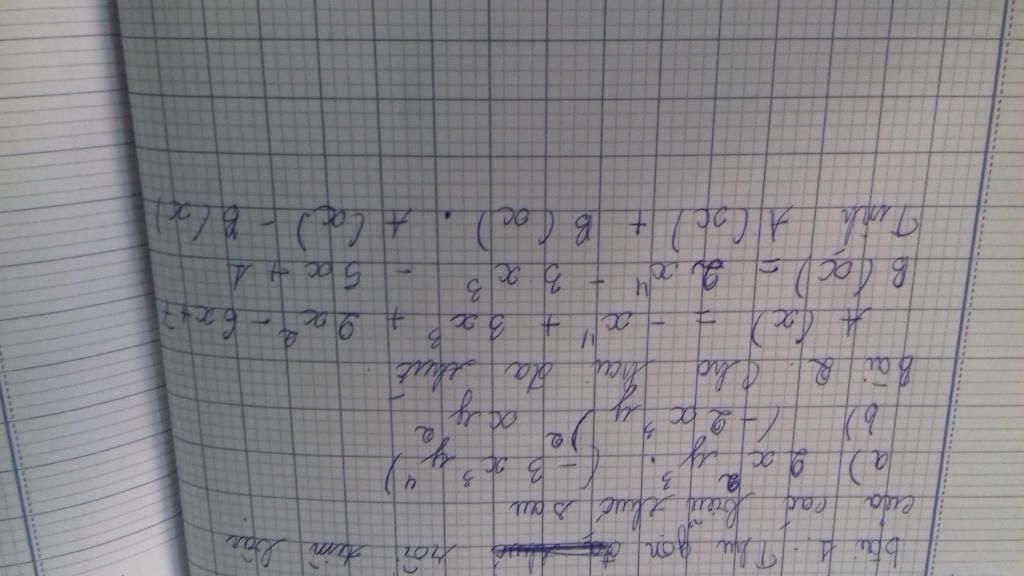 bài 1. Thu gọn rồi tìm bậc
của các biểu thức sau
a) 2x²y³ . (-3x³y⁴)
b) (-2x³y)² xy²
Bài 2. Cho hai đa thức
A(x) = -x⁴ + 3x³ + 2x² - 6x+7
B(x) = 2x⁴ - 3x³ - 5x + 1
Tính A(x) + B(x) . A(x) - B(x)